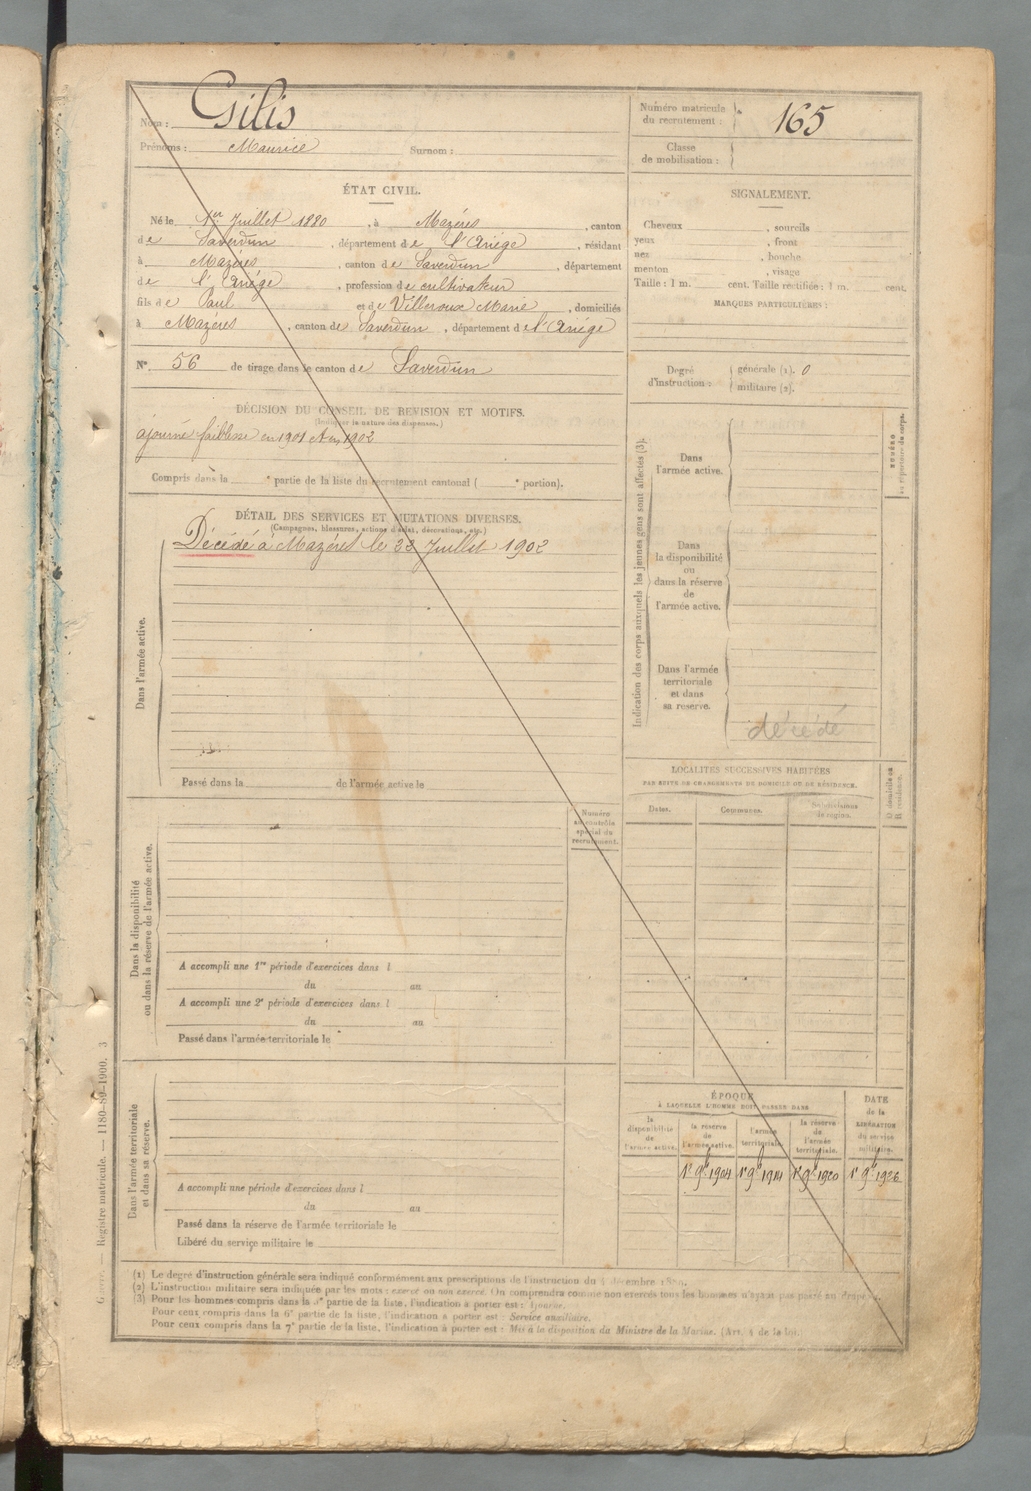 Nom : Gilis
Prénoms : Maurice Surnom :
Numéro matricule
du recrutement : 165
Classe
de mobilisation :
ÉTAT CIVIL.
Né le 1er Juillet 1880, à Mazéres, canton
de Saverdun, département de l'Ariége, résidant
à Mazéres, canton de Saverdun, département
de l'Ariége, profession de cultivateur
fils de Paul et de Villeroux Marie, domiciliés
à Mazéres, canton de Saverdun, département de l'Ariége
N° 56 de tirage dans le canton de Saverdun
DÉCISION DU CONSEIL DE REVISION ET MOTIFS.
(Indiquer la nature des dispenses.)
ajourné faiblesse en 1901 et en 1902
Compris dans la e partie de la liste du recrutement cantonal ( e portion).
SIGNALEMENT.
Cheveux , sourcils
yeux , front
nez , bouche
menton , visage
Taille : 1 m. cent. Taille rectifiée : 1 m. cent.
MARQUES PARTICULIÈRES :
Degré
d'instruction :
générale (1). 0
militaire (2).
DÉTAIL DES SERVICES ET MUTATIONS DIVERSES.
(Campagnes, blessures, actions d'éclat, décorations, etc.)
Dans l'armée active.
Décédé à Mazéres le 23 Juillet 1902
Passé dans la de l'armée active le
Indication des corps auxquels les jeunes gens sont affectés (3).
NUMÉRO
au répertoire du corps.
Dans
l'armée active.
Dans
la disponibilité
ou
dans la réserve
de
l'armée active.
Dans l'armée
territoriale
et dans
sa reserve.
décédé
LOCALITÉS SUCCESSIVES HABITÉES
PAR SUITE DE CHANGEMENTS DE DOMICILE OU DE RÉSIDENCE.
Dates.
Communes.
Subdivisions
de région.
D domicile ou
R résidence.
Dans la disponibilité
ou dans la réserve de l'armée active.
Numéro
au contrôle
spécial du
recrutement.
A accompli une 1re période d'exercices dans l
du au
A accompli une 2e période d'exercices dans l
du au
Passé dans l'armée territoriale le
Dans l'armée territoriale
et dans sa réserve.
A accompli une période d'exercices dans l
du au
Passé dans la réserve de l'armée territoriale le
Libéré du service militaire le
ÉPOQUE
À LAQUELLE L'HOMME DOIT PASSER DANS
la
disponibilité
de
l'armée active.
la réserve
de
l'armée active.
l'armée
territoriale.
la réserve
de
l'armée
territoriale.
DATE
de la
LIBÉRATION
du service
militaire.
1er 9bre 1904 1er 9bre 1914 1er 9bre 1920 1er 9bre 1926
Guerre. — Registre matricule. — 1180-89-1900. 3
(1) Le degré d'instruction générale sera indiqué conformément aux prescriptions de l'instruction du 4 décembre 1889.
(2) L'instruction militaire sera indiquée par les mots : exercé ou non exercé. On comprendra comme non exercés tous les hommes n'ayant pas passé au drapeau.
(3) Pour les hommes compris dans la 5e partie de la liste, l'indication à porter est : Ajourné.
Pour ceux compris dans la 6e partie de la liste, l'indication à porter est : Service auxiliaire.
Pour ceux compris dans la 7e partie de la liste, l'indication à porter est : Mis à la disposition du Ministre de la Marine. (Art. 4 de la loi).